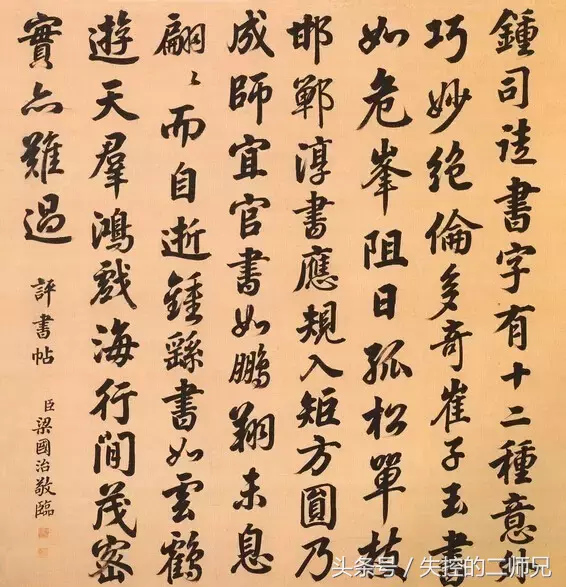 鍾司徒書字有十二種意外
巧妙絕倫多奇崔子玉書
如危峯阻日孤松單枝
邯鄲淳書應規入矩方圓乃
成師宜官書如鵬翔未息
翩〻而自逝鍾繇書如雲鶴
遊天羣鴻戲海行間茂密
實亦難過
評書帖
臣梁國治敬臨
头条号 / 失控的二师兄